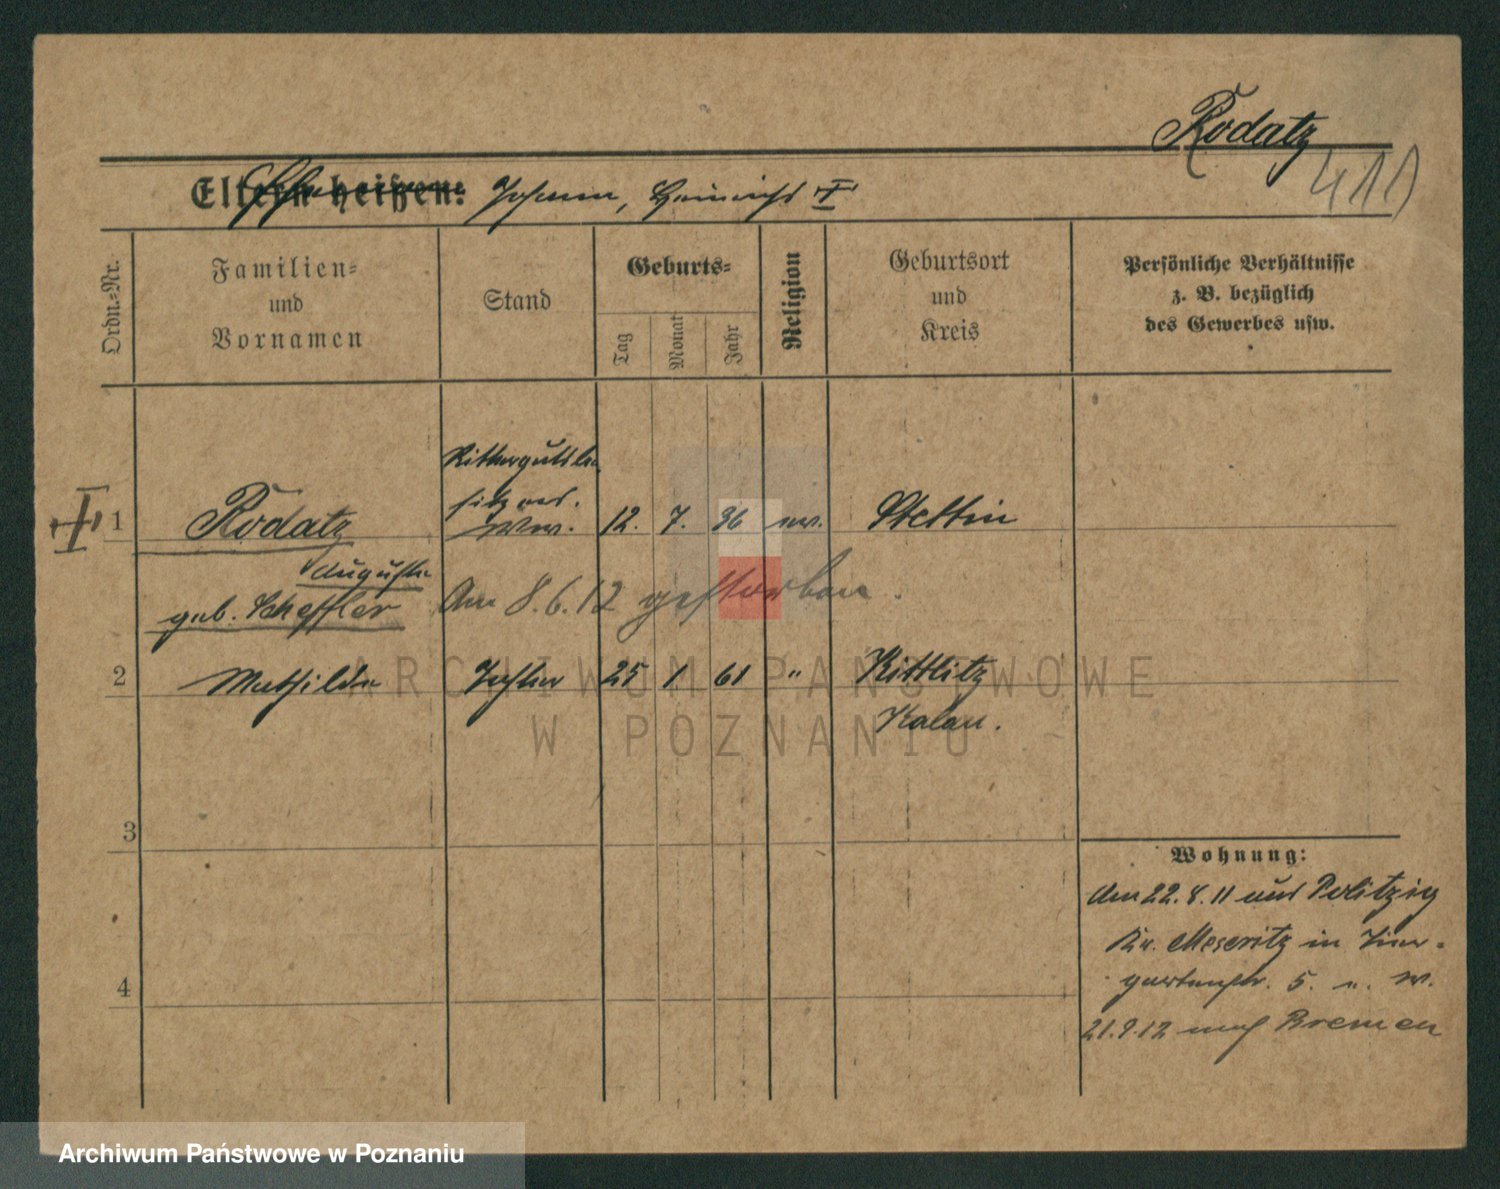 Rodatz
411
Eltern heißen: Johann, Heinrich †
Ordn.-Nr.
Familien-
und
Vornamen
Stand
Geburts-
Tag
Monat
Jahr
Religion
Geburtsort
und
Kreis
Persönliche Verhältnisse
z. B. bezüglich
des Gewerbes usw.
Rittergutsbe
sitzers.
Ww.
1 Rodatz 12. 7. 36 ev. Stettin
Auguste
geb. Scheffler
Am 8.6.12 gestorben.
2 Mathilde Tochter 25 1 61 " Kittlitz
Kalau.
3
4
Wohnung:
Am 22.8.11 aus Politzig
Kr. Meseritz in Tier-
gartenstr. 5.
21.9.12 nach Bremen
ARCHIWUM PAŃSTWOWE
W POZNANIU
Archiwum Państwowe w Poznaniu